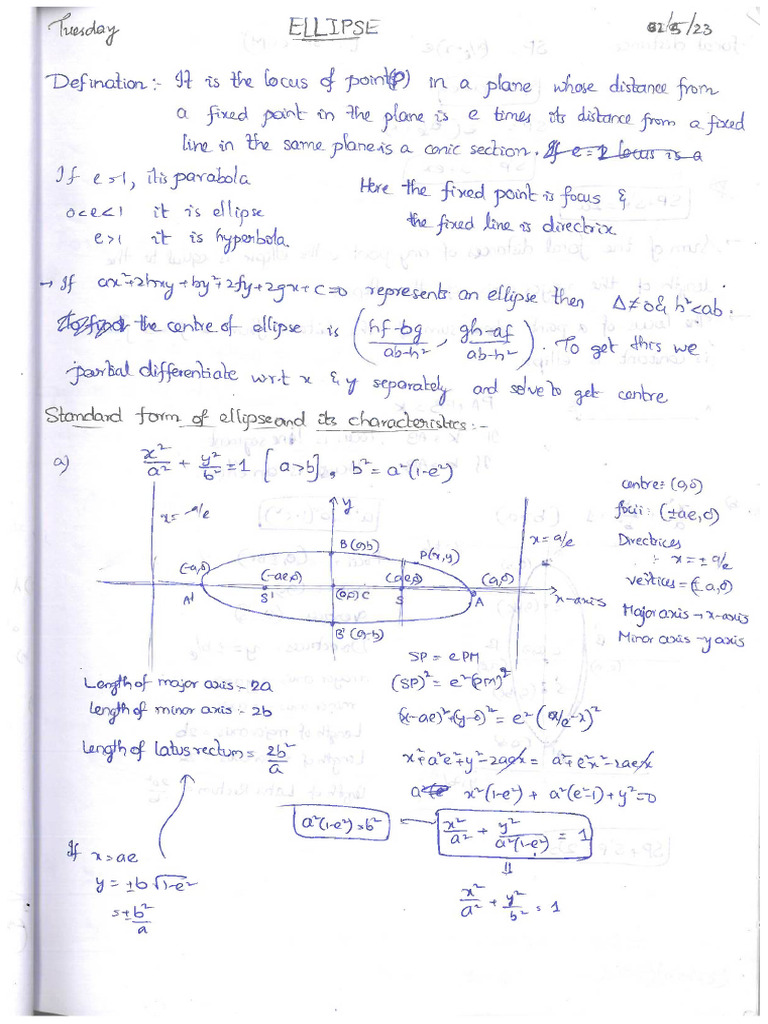 Tuesday
ELLIPSE
/5/23
Defination:- It is the locus of point(P) in a plane whose distance from
a fixed point in the plane is e times its distance from a fixed
line in the same plane is a conic section. If e=1 locus is a
If e=1, it is parabola
0<e<1 it is ellipse
e>1 it is hyperbola.
Here the fixed point is focus &
the fixed line is directrix
→ If ax²+2hxy+by²+2fy+2gx+c=0 represents an ellipse then Δ≠0 & h²<ab.
the centre of ellipse is (hf-bg/ab-h², gh-af/ab-h²). To get this we
partial differentiate w.r.t x & y separately and solve to get centre
Standard form of ellipse and its characteristics:-
a) x²/a² + y²/b² = 1 [a>b], b² = a²(1-e²)
centre = (0,0)
focii: (±ae,0)
Directrices
: x = ± a/e
vertices = (±a,0)
Major axis → x-axis
Minor axis - y axis
x = -a/e
y
x = a/e
B(0,b)
P(x,y)
(-a,0)
(-ae,0)
(ae,0)
(a,0)
A'
S'
(0,0) C
S
A
x-axis
B'(0,-b)
Length of major axis:- 2a
Length of minor axis:- 2b
Length of latus rectum = 2b²/a
If x=ae
y = ±b√1-e²
= ±b²/a
SP = ePM
(SP)² = e²(PM)²
(x-ae)²+(y-0)² = e²(a/e-x)²
x²+a²e²+y²-2aex = a²+e²x²-2aex
x²(1-e²) + a²(e²-1)+y²=0
a²(1-e²)=b² ← x²/a² + y²/a²(1-e²) = 1
⇓
x²/a² + y²/b² = 1